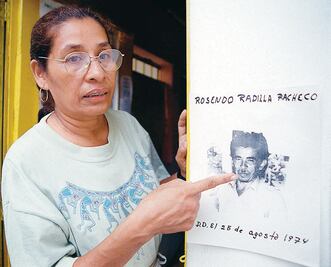 ROSENDO RADILLA PACHECO
D.D. El 25 de agosto 1974